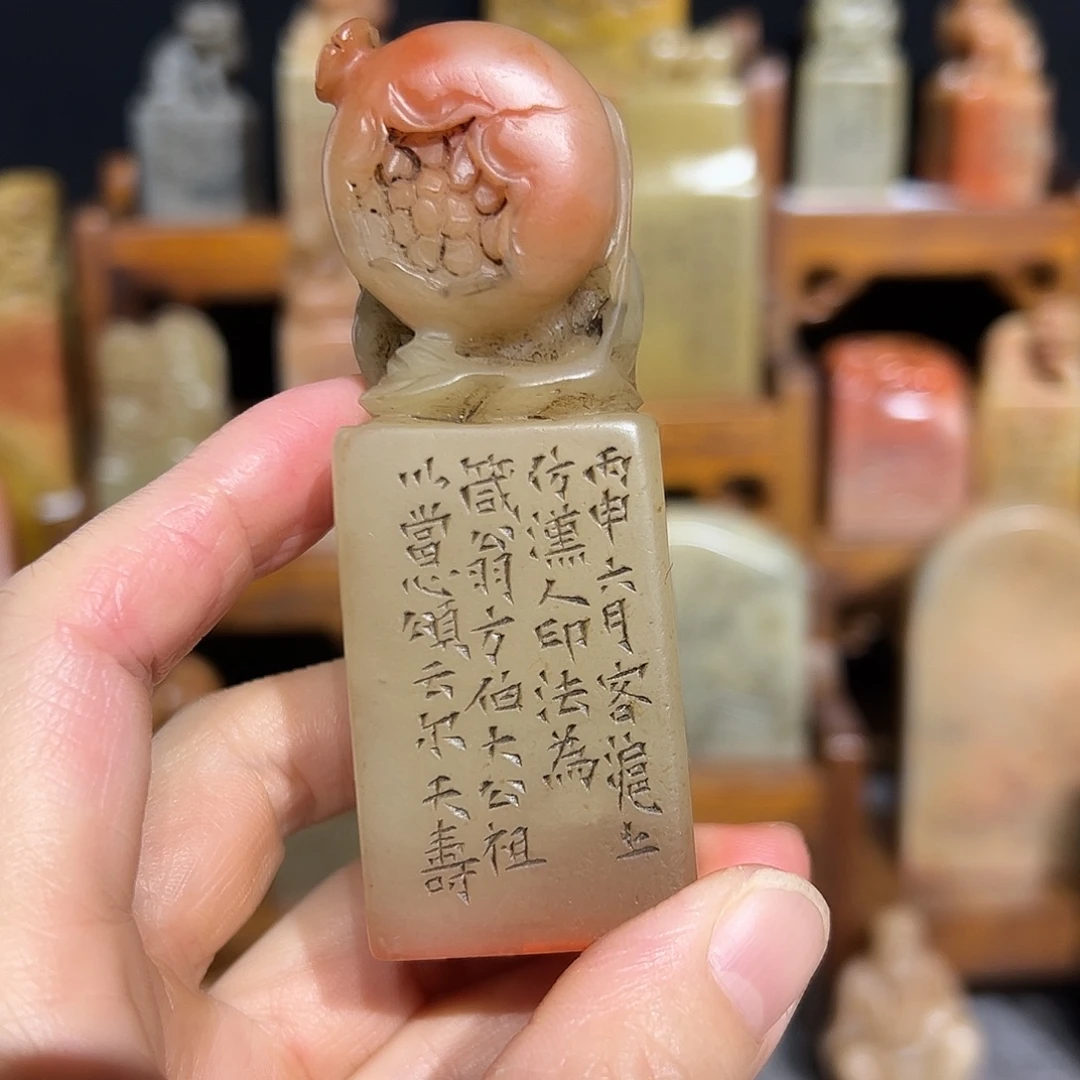 丙申六月客滬上
仿漢人印法為
箴翁方伯大公祖
以當心頌云尔千壽